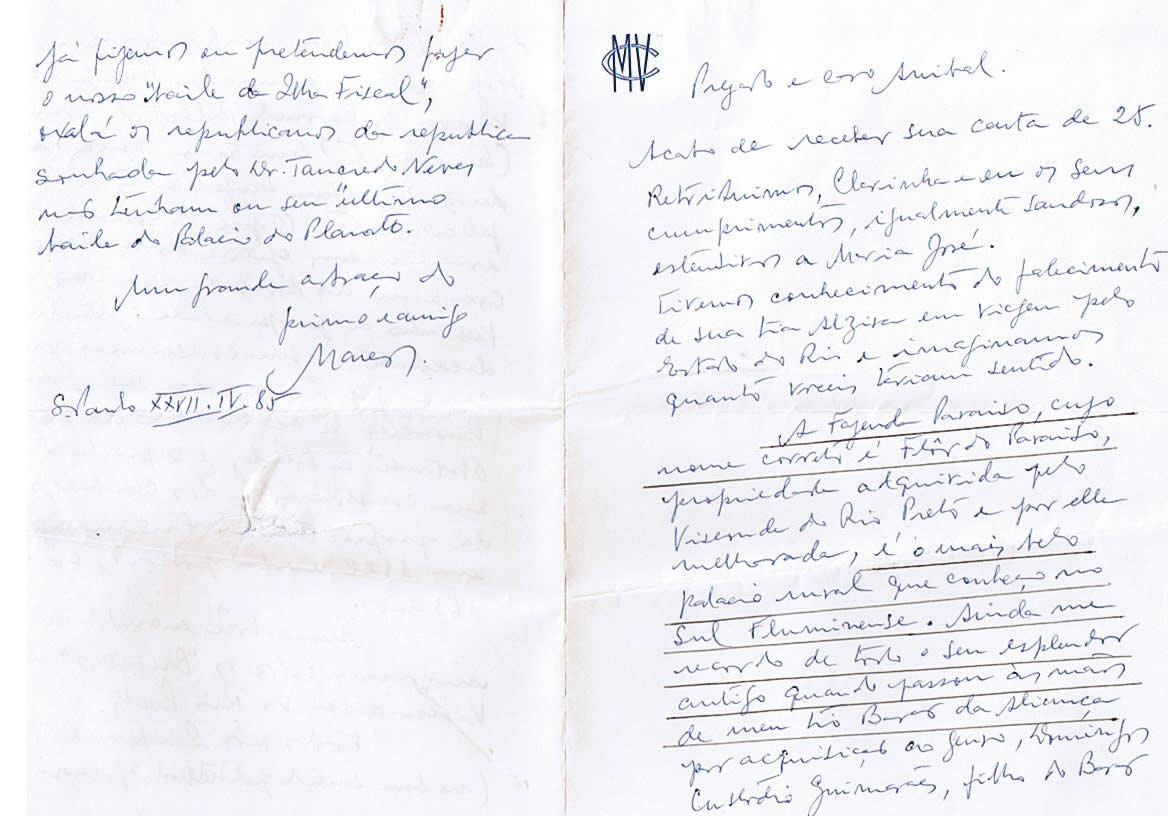 MVC
Prezado e caro Anibal.
Acabo de receber sua carta de 25.
Retribuimos, Clarinha e eu os seus
cumprimentos, igualmente saudosos,
estendidos a Maria José.
Tivemos conhecimento do falecimento
de sua tia Alzira em viagem pelo
Estado do Rio e imaginamos
quanto vocês teriam sentido.
A Fazenda Paraiso, cujo
nome corréto é Flôr do Paraiso,
propriedade adquirida pelo
Visconde do Rio Preto e por elle
melhorada, é o mais belo
palacio rural que conheço no
Sul Fluminense. Ainda me
recordo de todo o seu esplendor
antigo quando passou às mãos
de meu tio Barão da Aliança
por acquisição ao genro, Domingos
Custódio Guimarães, filho do Barão
Já fizemos ou pretendemos fazer
o nosso "baile da Ilha Fiscal",
oxalá os republicanos da republica
sonhada pelo Dr. Tancredo Neves
não tenham ou seu "ultimo
baile do Palacio do Planalto.
Um grande abraço do
primo e amigo
S. Paulo XXVII.IV.85